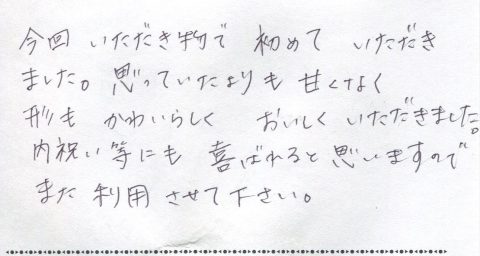 今回 いただき物で 初めて いただき
ました。思っていたよりも 甘くなく
形も かわいらしく おいしく いただきました。
内祝い等にも 喜ばれると思いますので
また 利用 させて下さい。